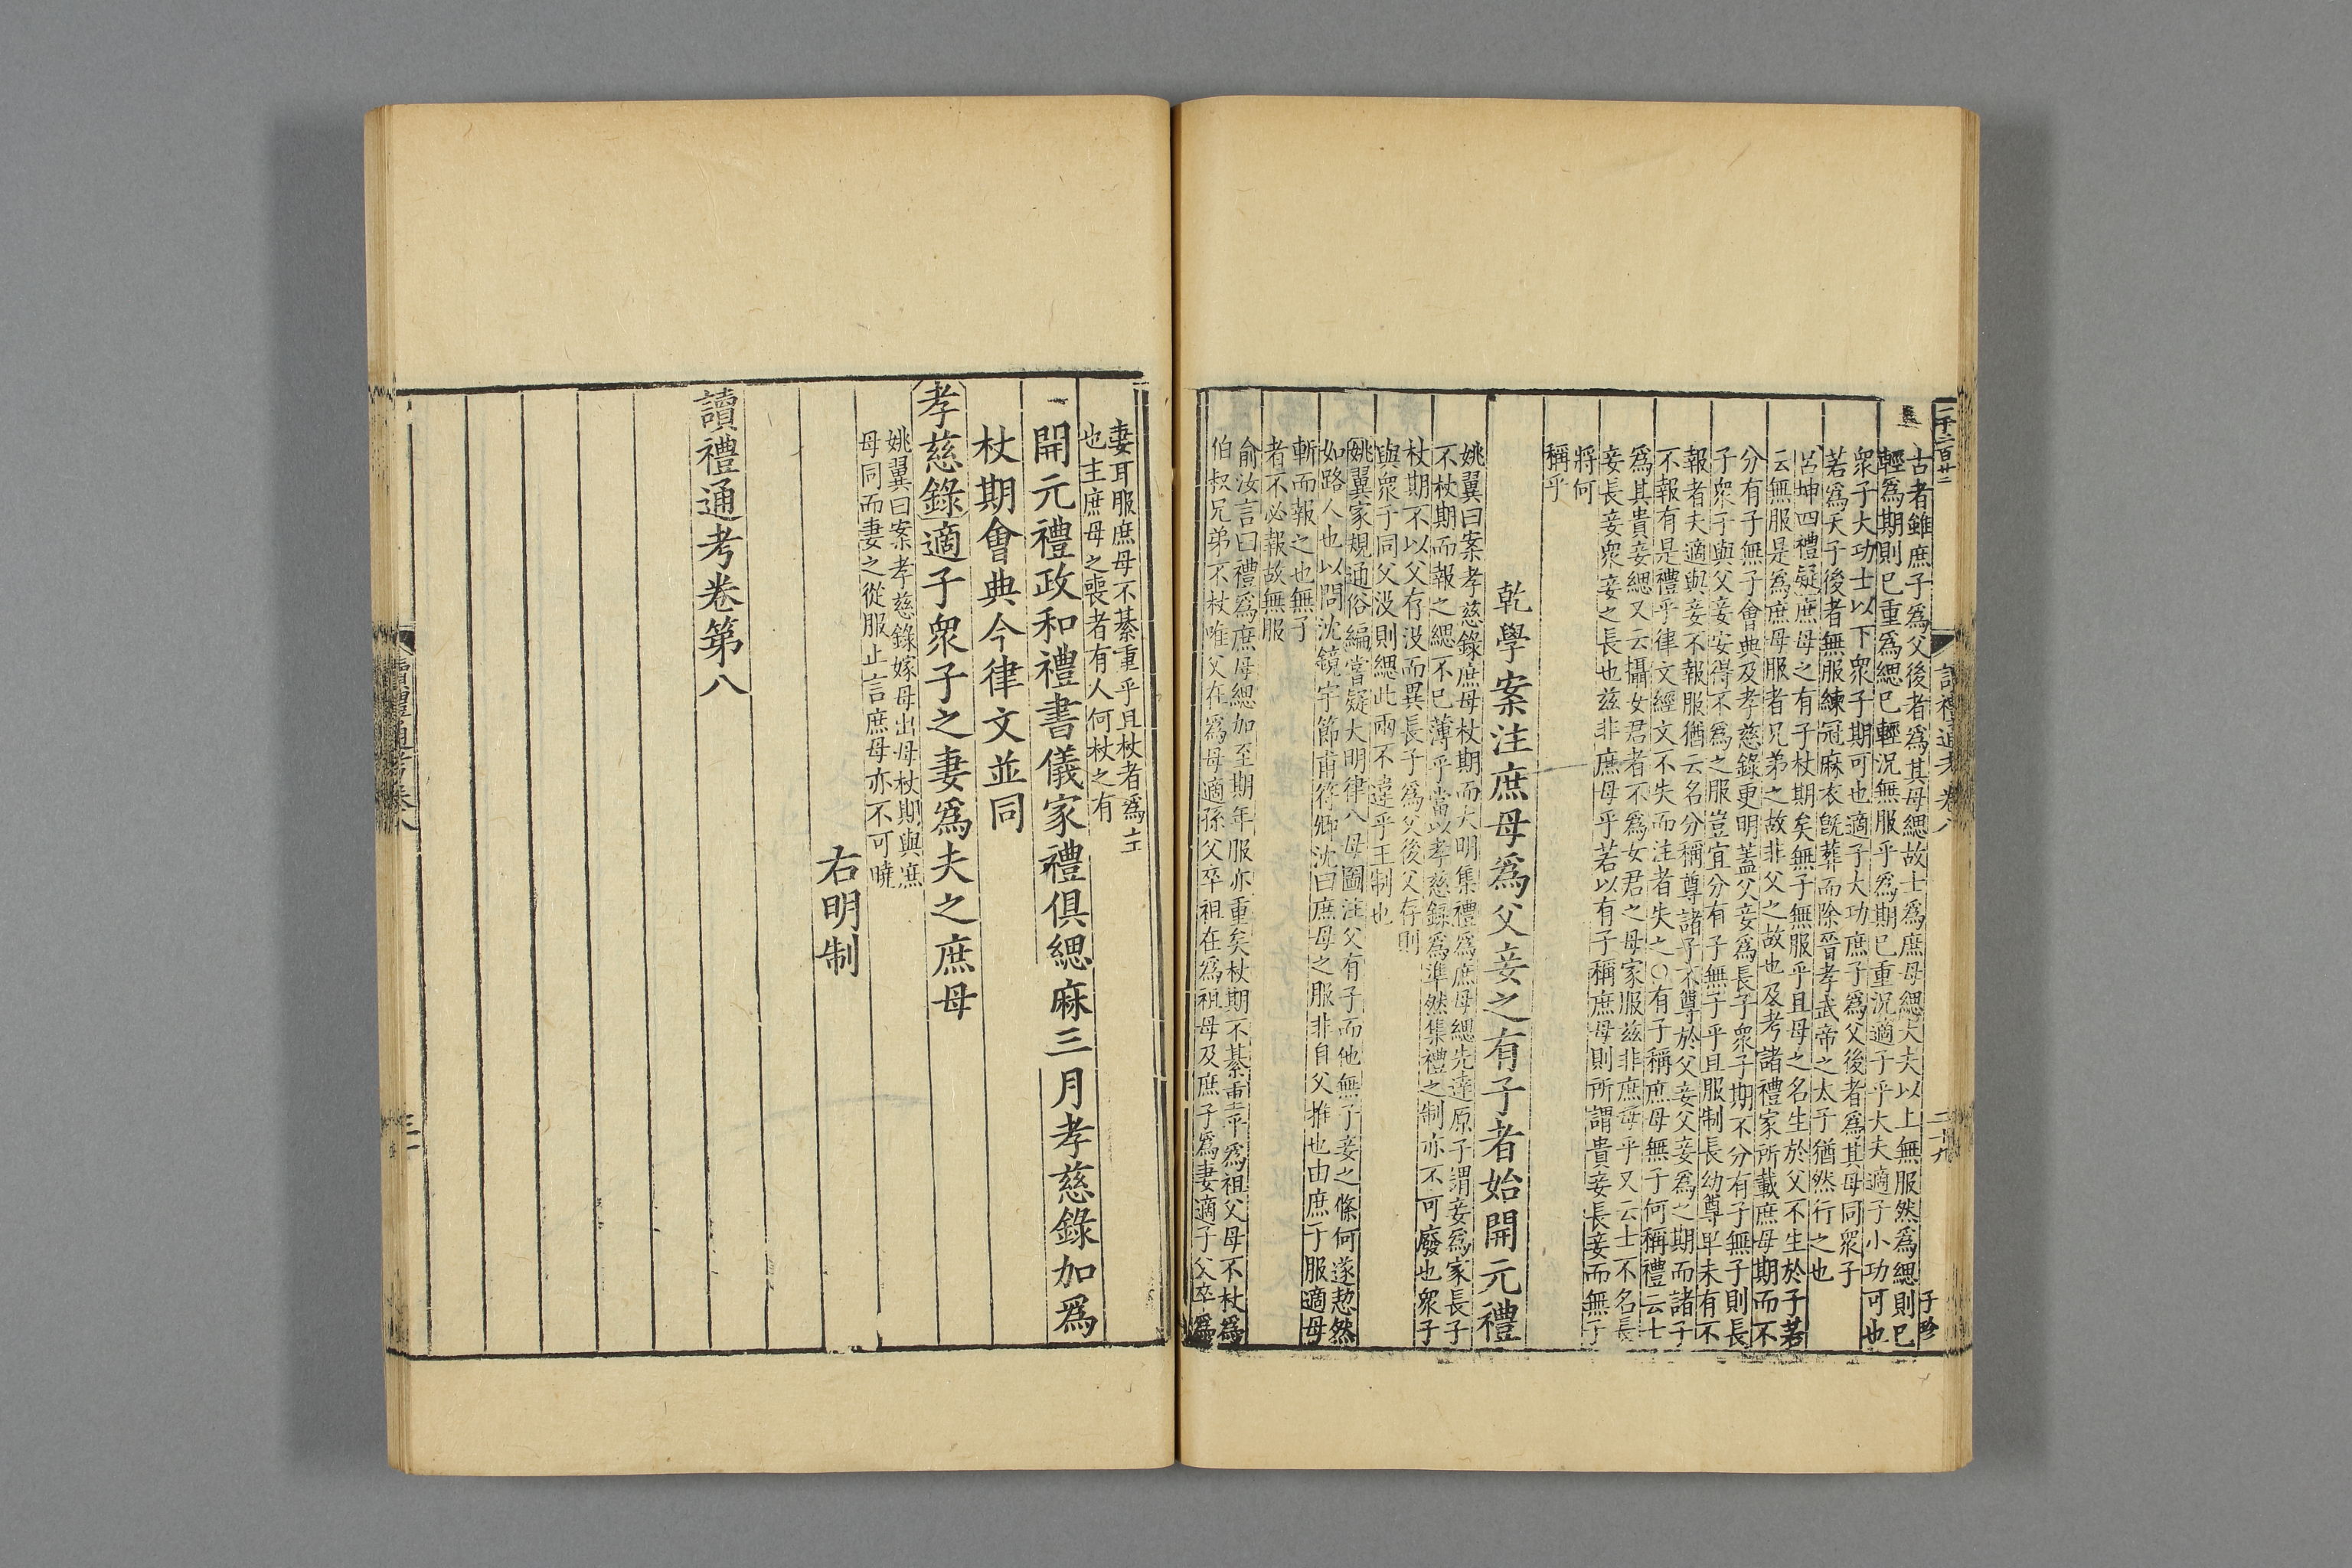 二千二百廿二
讀禮通考卷八
二十九
子珍
古者雖庶子爲父後者爲其母緦故士爲庶母緦大夫以上無服然爲緦則已
輕爲期則已重爲緦已輕況無服乎爲期已重況適子乎大夫適子小功可也
衆子大功士以下衆子期可也適子大功庶子爲父後者爲其母同衆子
若爲天子後者無服練冠麻衣旣葬而除晉孝武帝之太子猶然行之也
呂坤四禮疑庶母之有子杖期矣無子無服乎且母之名生於父不生於子若
云無服是爲庶母服者兄弟之故非父之故也及考諸禮家所載庶母期而不
分有子無子會典及孝慈錄更明蓋父妾爲長子衆子期不分有子無子則長
子衆子與父妾安得不爲之服豈宜分有子無子乎且服制長幼尊卑未有不
報者夫適與妾不報服猶云名分稱尊諸子不尊於父妾父妾爲之期而諸子
不報有是禮乎律文經文不失而注者失之○有子稱庶母無子何稱禮云士
爲其貴妾緦又云攝女君者不爲女君之母家服茲非庶母乎又云士不名長
妾長妾衆妾之長也茲非庶母乎若以有子稱庶母則所謂貴妾長妾而無子
將何
稱乎
乾學案注庶母爲父妾之有子者始開元禮
姚翼曰案孝慈錄庶母杖期而大明集禮爲庶母緦先達原子謂妾爲家長子
不杖期而報之緦不已薄乎當以孝慈錄爲準然集禮之制亦不可廢也衆子
杖期不以父存没而異長子爲父後父存則
與衆子同父没則緦此兩不違乎王制也
姚翼家規通俗編嘗疑大明律八母圖注父有子而他無子妾之條何遂恝然
如路人也以問沈鏡宇節甫符卿沈曰庶母之服非自父推也由庶子服適母
斬而報之也無子
者不必報故無服
俞汝言曰禮爲庶母緦加至期年服亦重矣杖期不綦重乎爲祖父母不杖爲
伯叔兄弟不杖唯父在爲母適孫父卒祖在爲祖母及庶子爲妻適子父卒爲
妻耳服庶母不綦重乎且杖者爲主
也主庶母之喪者有人何杖之有
開元禮政和禮書儀家禮俱緦麻三月孝慈錄加爲
杖期會典今律文並同
孝慈錄適子衆子之妻爲夫之庶母
姚翼曰案孝慈錄嫁母出母杖期與庶
母同而妻之從服止言庶母亦不可曉
右明制
讀禮通考卷第八
讀禮通考卷八
三十